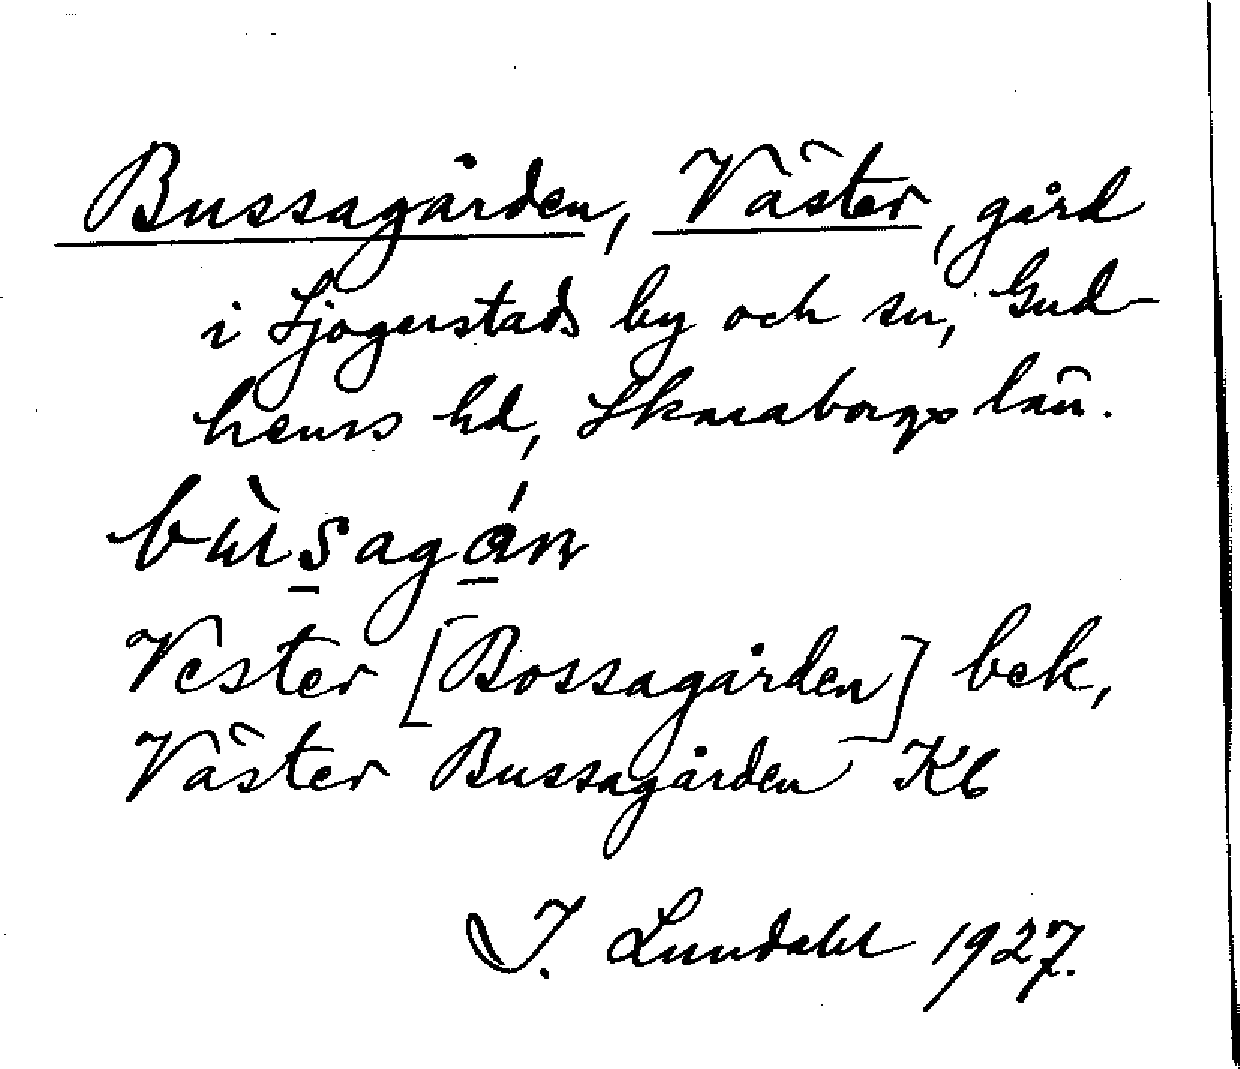 Bussagården, Väster, gård
i Sjogerstads by och sn, Gud-
hems hd, Skaraborgs län.
bùsagán
Vester [Bossagården] bek,
Väster Bussagården Kb
I. Lundahl 1927.